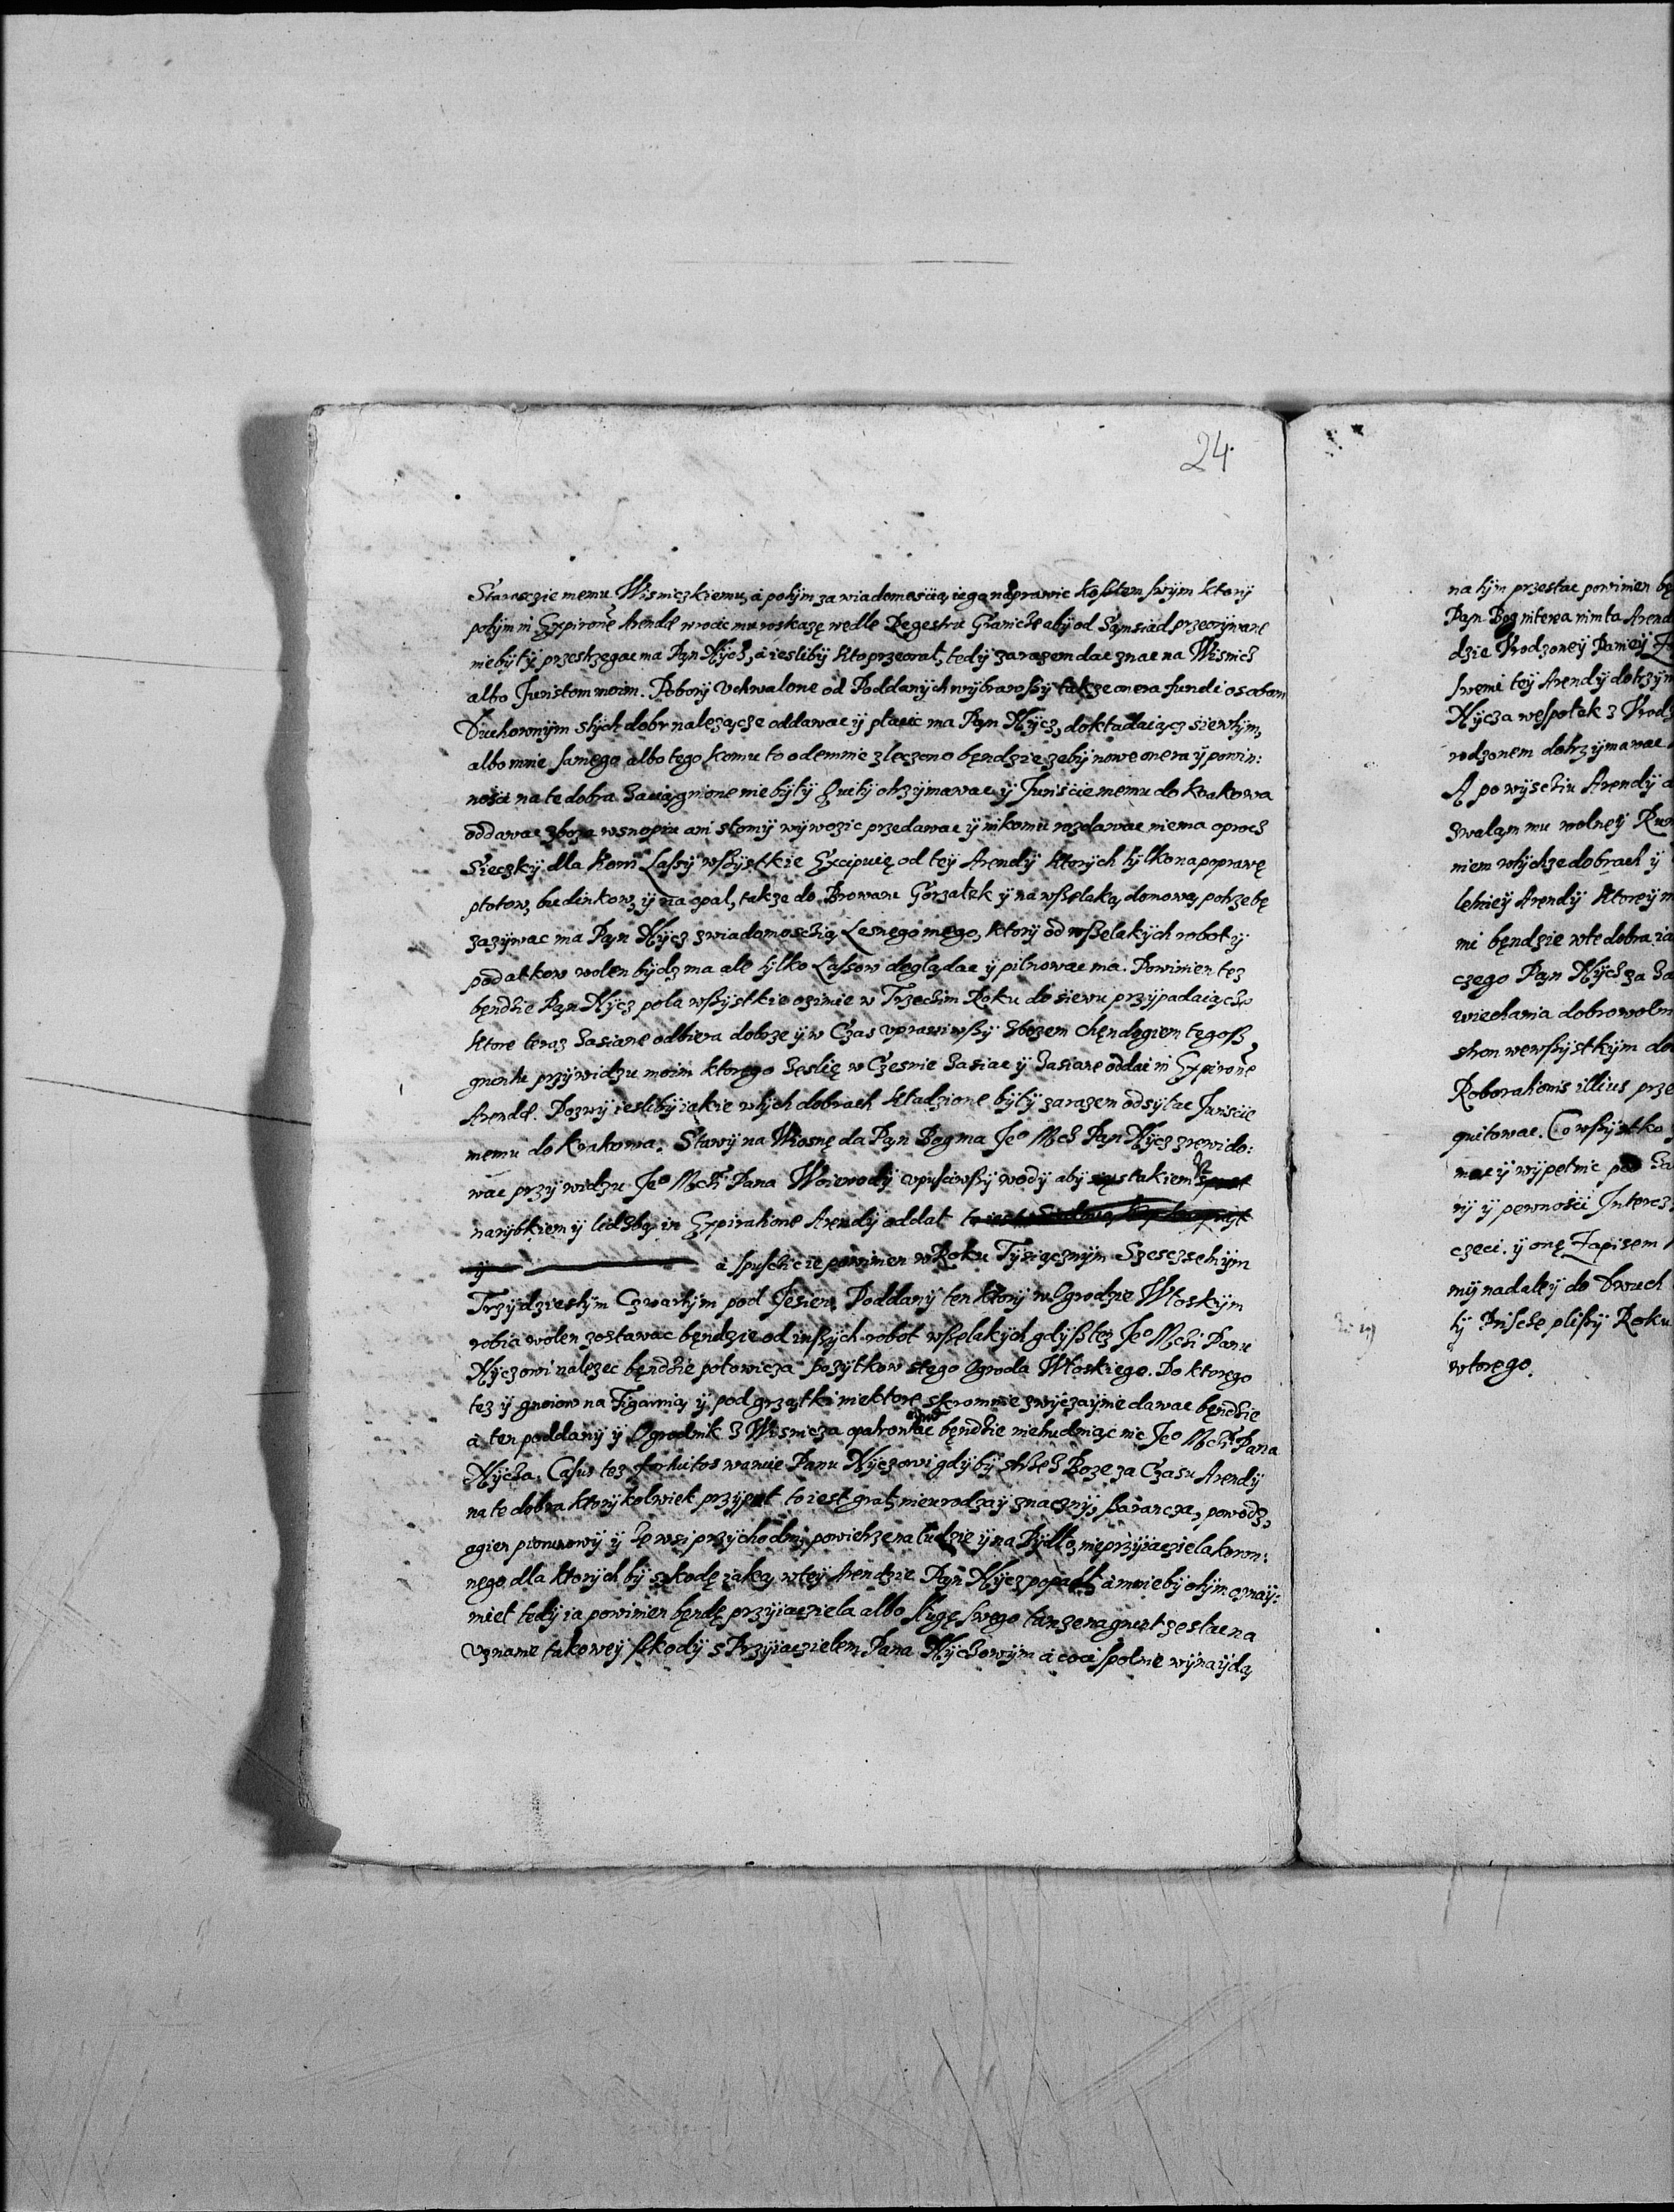 24.
Staroscie memu Wisniczkiemu, á potÿm za wiadomoscią iego náprawic kosztem swÿm ktorÿ
potÿm in Expiroñe Arendæ wrocic mu roskazę wedle Regestru Granicze abÿ od Sąnsiad przeorÿwane
niebÿłÿ przestrzegac ma Pąn Hÿcz, á ieslibÿ kto przeorał, tedÿ zarazem dac znac na Wisnicz
albo Juristom moim. Poborÿ Vchwalone od Poddanÿch wÿbrawszÿ także onera fundi osobam
Duchownÿm stÿch dobr należącze oddawac ÿ płacic ma Pąn Hÿcz, dokładaiącz sie wtÿm,
albo mnie samego albo tego komu to odemnie zleczono bęndzie zebÿ nowe onera ÿ powin:
nosci na te dobra zaciągnione niebÿłÿ Quitÿ otrzÿmawac ÿ Juriscie memu do Krakowa
oddawac zboza wsnopiu ani słomÿ wÿwozic przedawac ÿ nikomu rozdawac niema oprocz
Sieczkÿ dla koni Lassÿ wszÿstkie Excipuię od teÿ Arendÿ ktorÿch tÿlko na poprawę
płotow, budinkow, ÿ na opał, także do Browaru Gorzałek ÿ na wszelaką domową potrzebę
zazÿwac ma Pąn Hÿcz z wiadomoscią Lesnego mego, ktorÿ od wszelakÿch robot ÿ
podatkow wolen bÿdz ma ale tÿlko Lassow doglądac ÿ pilnowac ma. Powinien tez
bęndzie Pąn Hÿcz pola wszÿstkie ozimie w Trzechim Roku do siewu przÿpadaiącze
ktore teraz zasiane odbiera dobrze ÿ w Czas vprawiwszÿ zbozem chęndogiem tęgosz
gruntu przÿ widzu moim ktorego zeslię w Czesnie zasiac ÿ zasiane oddac in Expiroñe
Arendæ. Pozwÿ ieslibÿ iakie wtÿch dobrach kładzione bÿłÿ zarazem odsÿłac Juriscie
memu do Krakowa. Stawÿ na Wiosnę da Pąn Bog ma Jeº Mcz Pąn Hÿcz zrewido:
wac przÿ widzu Jeº Mczi Pana Woiewodÿ vpusciwszÿ wodÿ abÿ stakiem
narÿbkiem ÿ liczbą in Expiratione Arendÿ oddał
ÿ á spuscic ie powinien w Roku Tÿsiącznÿm Szescsetnÿm
Trzÿdziestÿm Czwartÿm pod Jesien. Poddanÿ ten ktorÿ w Ogrodzie Włoskÿm
robia wolen zostawac bęndzie od inszÿch robot wszelakÿch gdÿsz tez Jeº Mczi Panu
Hÿczowi nalezec bęndzie połowicza pozÿtkow stego Ogroda Włoskiego. Do ktorego
tez ÿ gnoiow na Figarnią ÿ pod grządki niektore skromnie zwÿczaÿnie dawac bęndzie
á ten poddanÿ ÿ Ogrodnik z Wisnicza opatrowac bęndzie nietrudniąc nic Jeº Mczi Pana
Hÿcza. Casus tez fortuitos waruie Panu Hÿczowi gdÿbÿ strzez Boze za Czasu Arendÿ
na te dobra ktorÿkolwiek przÿpadł to iest grad, nieurodzaÿ znacznÿ, szarancza, powodz,
ogien piorunowÿ ÿ ze wsi przÿchodni, powietrze na ludzie ÿ na Bÿdło, nieprzÿiaciela koron:
nego dla ktorÿch bÿ szkodę iaką wteÿ Arendzie Pąn Hÿcz popadł á mnie bÿ otÿm oznaÿ:
mieł tedÿ ia powinien bęndę przÿiaciela albo sługę swego tamze na grunt zesłac na
Vznanie takoweÿ szkodÿ s Przÿiacielem Pana Hÿczowÿm á co ci spolnie wÿnaÿdą
na tÿm przestac powinien
Pąn Bog
dzie Vrodzoneÿ Panieÿ
swemi teÿ Arendÿ dotrzÿm
Hÿcza wespołek z Vrodz
rodzonem dotrzÿmawac
A po wÿsciu Arendÿ
zwalam mu wolneÿ
niem wtÿchze dobrach ÿ
letnieÿ Arendÿ ktoreÿ
mi bęndzie wte dobra
czego Pąn Hÿcz za
wiechania dobrowoln
stron wewszÿstkÿm
Roborationis illius prze
quitowac. Co wszÿstko
mac ÿ wÿpełnic pod
rÿ ÿ pewnosci Intercz
czeci. ÿ onę Zapisem
mÿ nadaleÿ do Dwuch
tÿ Pische plissÿ Roku
wtorego.